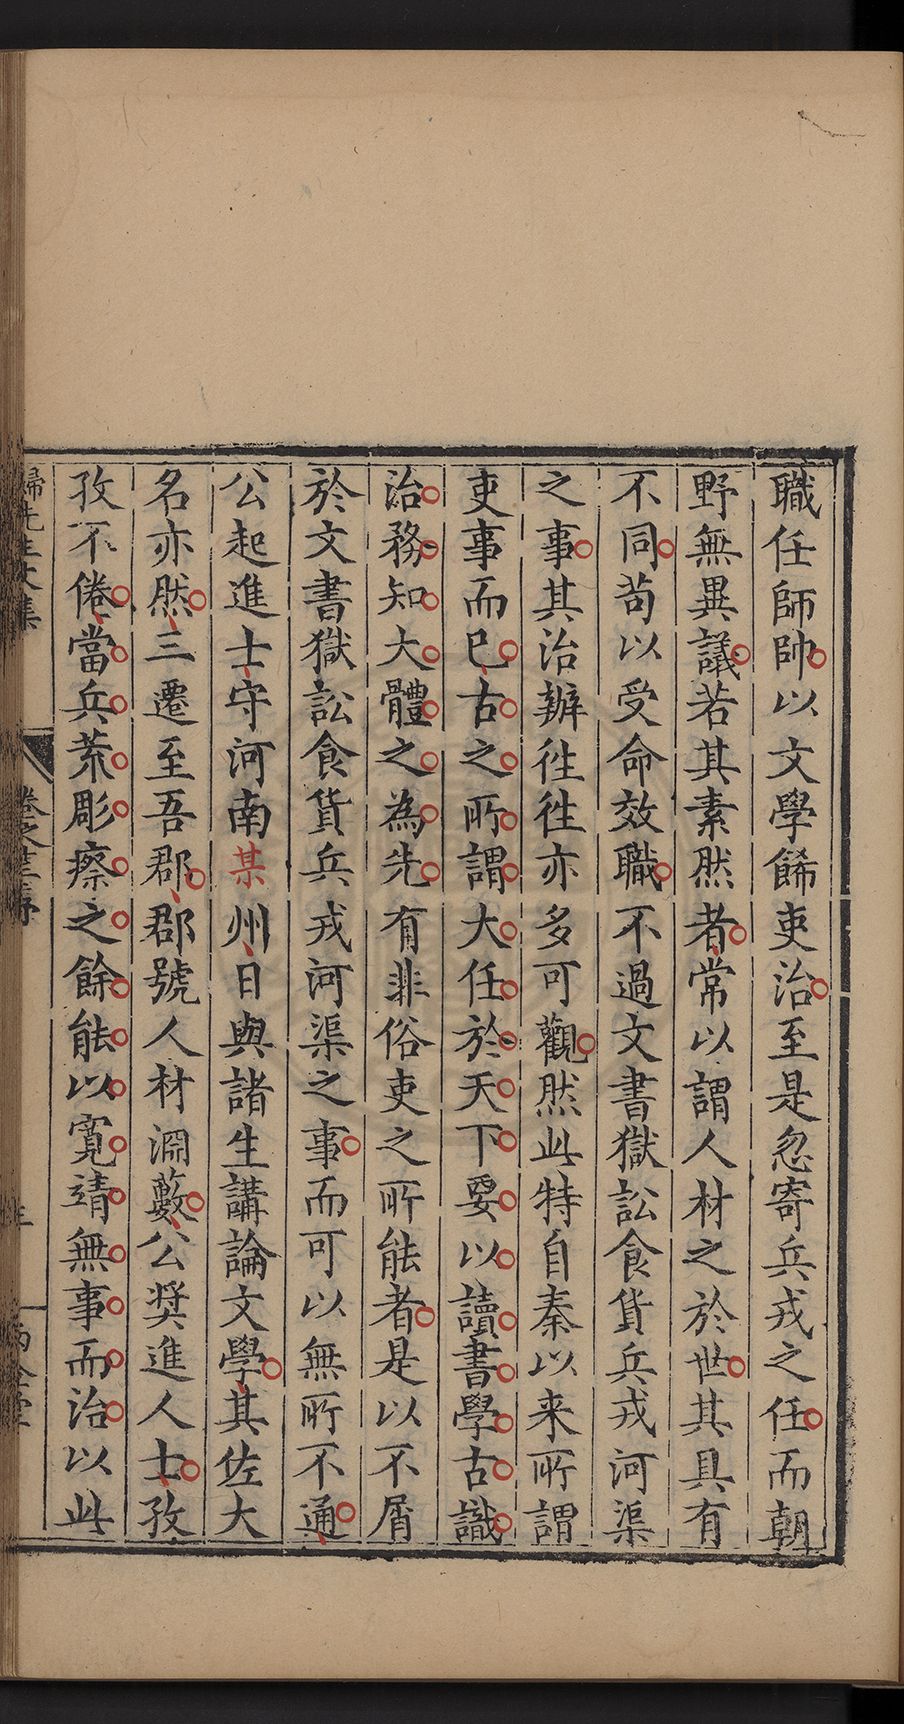 職任師帥以文學餙吏治至是忽寄兵戎之任而朝
野無異議若其素然者常以謂人材之於世其具有
不同苟以受命效職不過文書獄訟食貨兵戎河渠
之事其治辦徃徃亦多可觀然此特自秦以来所謂
吏事而已古之所謂大任於天下要以讀書學古識
治務知大體之為先有非俗吏之所能者是以不屑
於文書獄訟食貨兵戎河渠之事而可以無所不通
公起進士守河南某州日與諸生講論文學其佐大
名亦然三遷至吾郡郡號人材淵藪公奨進人士孜
孜不倦當兵荒彫瘵之餘能以寬靖無事而治以此
歸先生文集